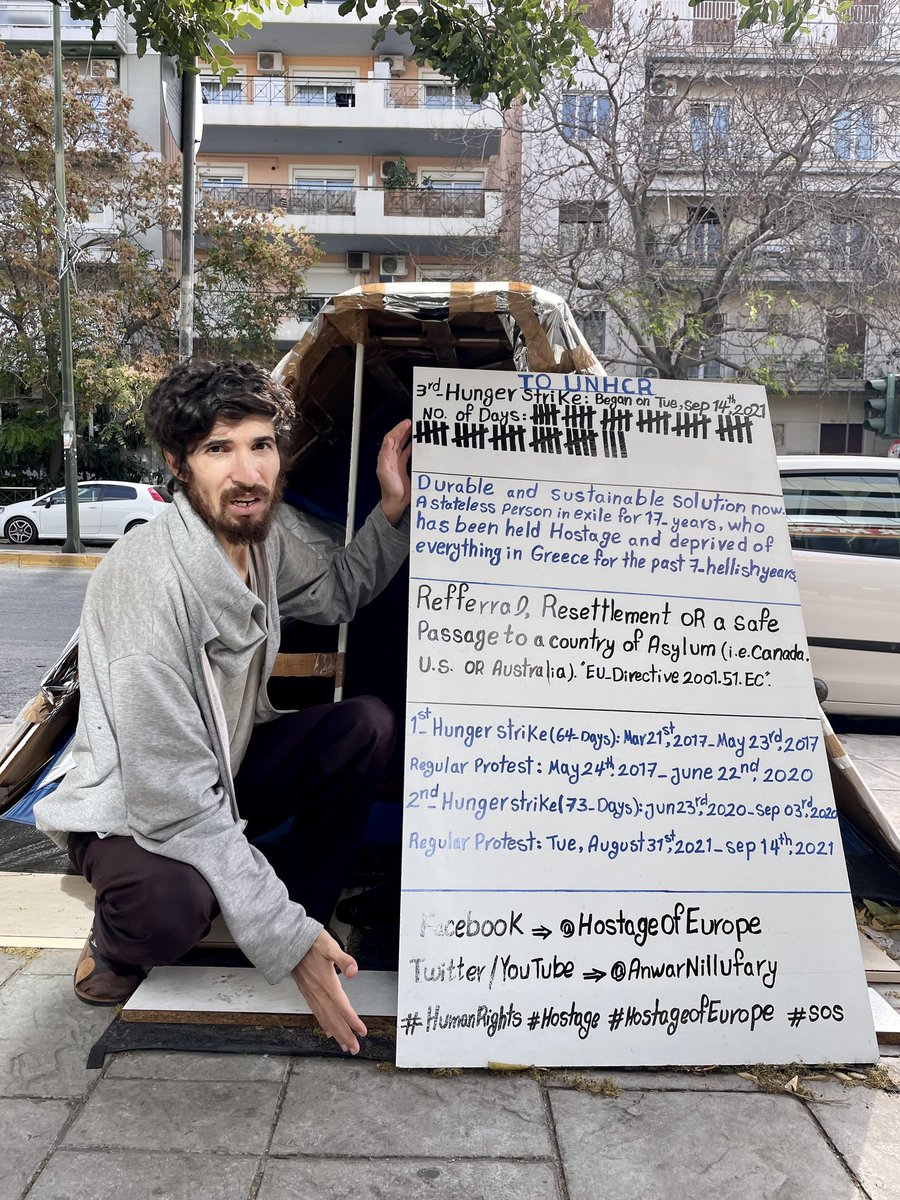 TO UNHCR
3rd Hunger Strike: Began on Tue, Sep 14th, 2021
No. of Days:
Durable and sustainable solution now.
A stateless person in exile for 17-years, who
has been held Hostage and deprived of
everything in Greece for the past 7-hellish years.
Refferral, Resettlement OR a safe
Passage to a country of Asylum (i.e. Canada,
U.S. OR Australia). "EU-Directive 2001.51.EC".
1st Hunger strike (64-Days): Mar 21st, 2017-May 23rd, 2017
Regular Protest: May 24th, 2017-June 22nd, 2020
2nd Hunger strike (73-Days): Jun 23rd, 2020-Sep 03rd, 2020
Regular Protest: Tue, August 31st, 2021-Sep 14th, 2021
Facebook ⇒ @HostageofEurope
Twitter/YouTube ⇒ @AnwarNillufary
#HumanRights #Hostage #HostageofEurope #SOS